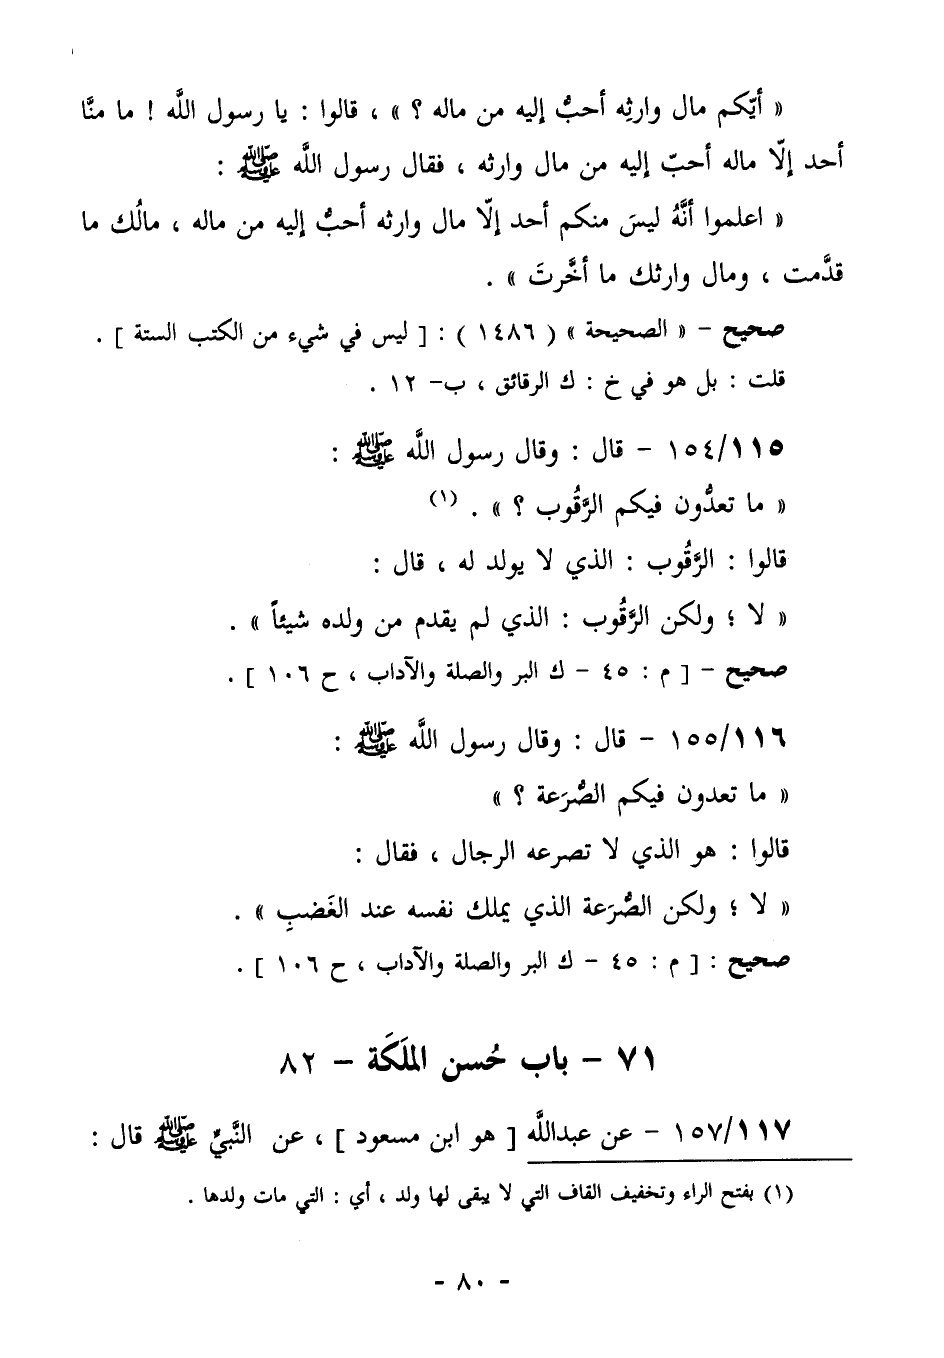 « أيّكم مال وارثِه أحبُّ إليه من ماله ؟ » ، قالوا : يا رسول اللَّه ! ما منَّا
أحد إلّا ماله أحبّ إليه من مال وارثه ، فقال رسول اللَّه ﷺ :
« اعلموا أنَّهُ ليسَ منكم أحد إلّا مال وارثه أحبُّ إليه من ماله ، مالُك ما
قدَّمت ، ومال وارثك ما أخَّرتَ » .
صحيح – « الصحيحة » ( ١٤٨٦ ) : [ ليس في شيء من الكتب الستة ] .
قلت : بل هو في خ : ك الرقائق ، ب– ١٢ .
١٥٤/١١٥ – قال : وقال رسول اللَّه ﷺ :
« ما تعدُّون فيكم الرَّقُوب ؟ » . (١)
قالوا : الرَّقُوب : الذي لا يولد له ، قال :
« لا ؛ ولكن الرَّقُوب : الذي لم يقدم من ولده شيئاً » .
صحيح – [ م : ٤٥ – ك البر والصلة والآداب ، ح ١٠٦ ] .
١٥٥/١١٦ – قال : وقال رسول اللَّه ﷺ :
« ما تعدون فيكم الصُّرَعة ؟ »
قالوا : هو الذي لا تصرعه الرجال ، فقال :
« لا ؛ ولكن الصُّرَعة الذي يملك نفسه عند الغَضبِ » .
صحيح : [ م : ٤٥ – ك البر والصلة والآداب ، ح ١٠٦ ] .
٧١ – باب حُسن الملَكَة – ٨٢
١٥٧/١١٧ – عن عبداللَّه [ هو ابن مسعود ] ، عن النَّبيِّ ﷺ قال :
(١) بفتح الراء وتخفيف القاف التي لا يبقى لها ولد ، أي : التي مات ولدها .
- ٨٠ -